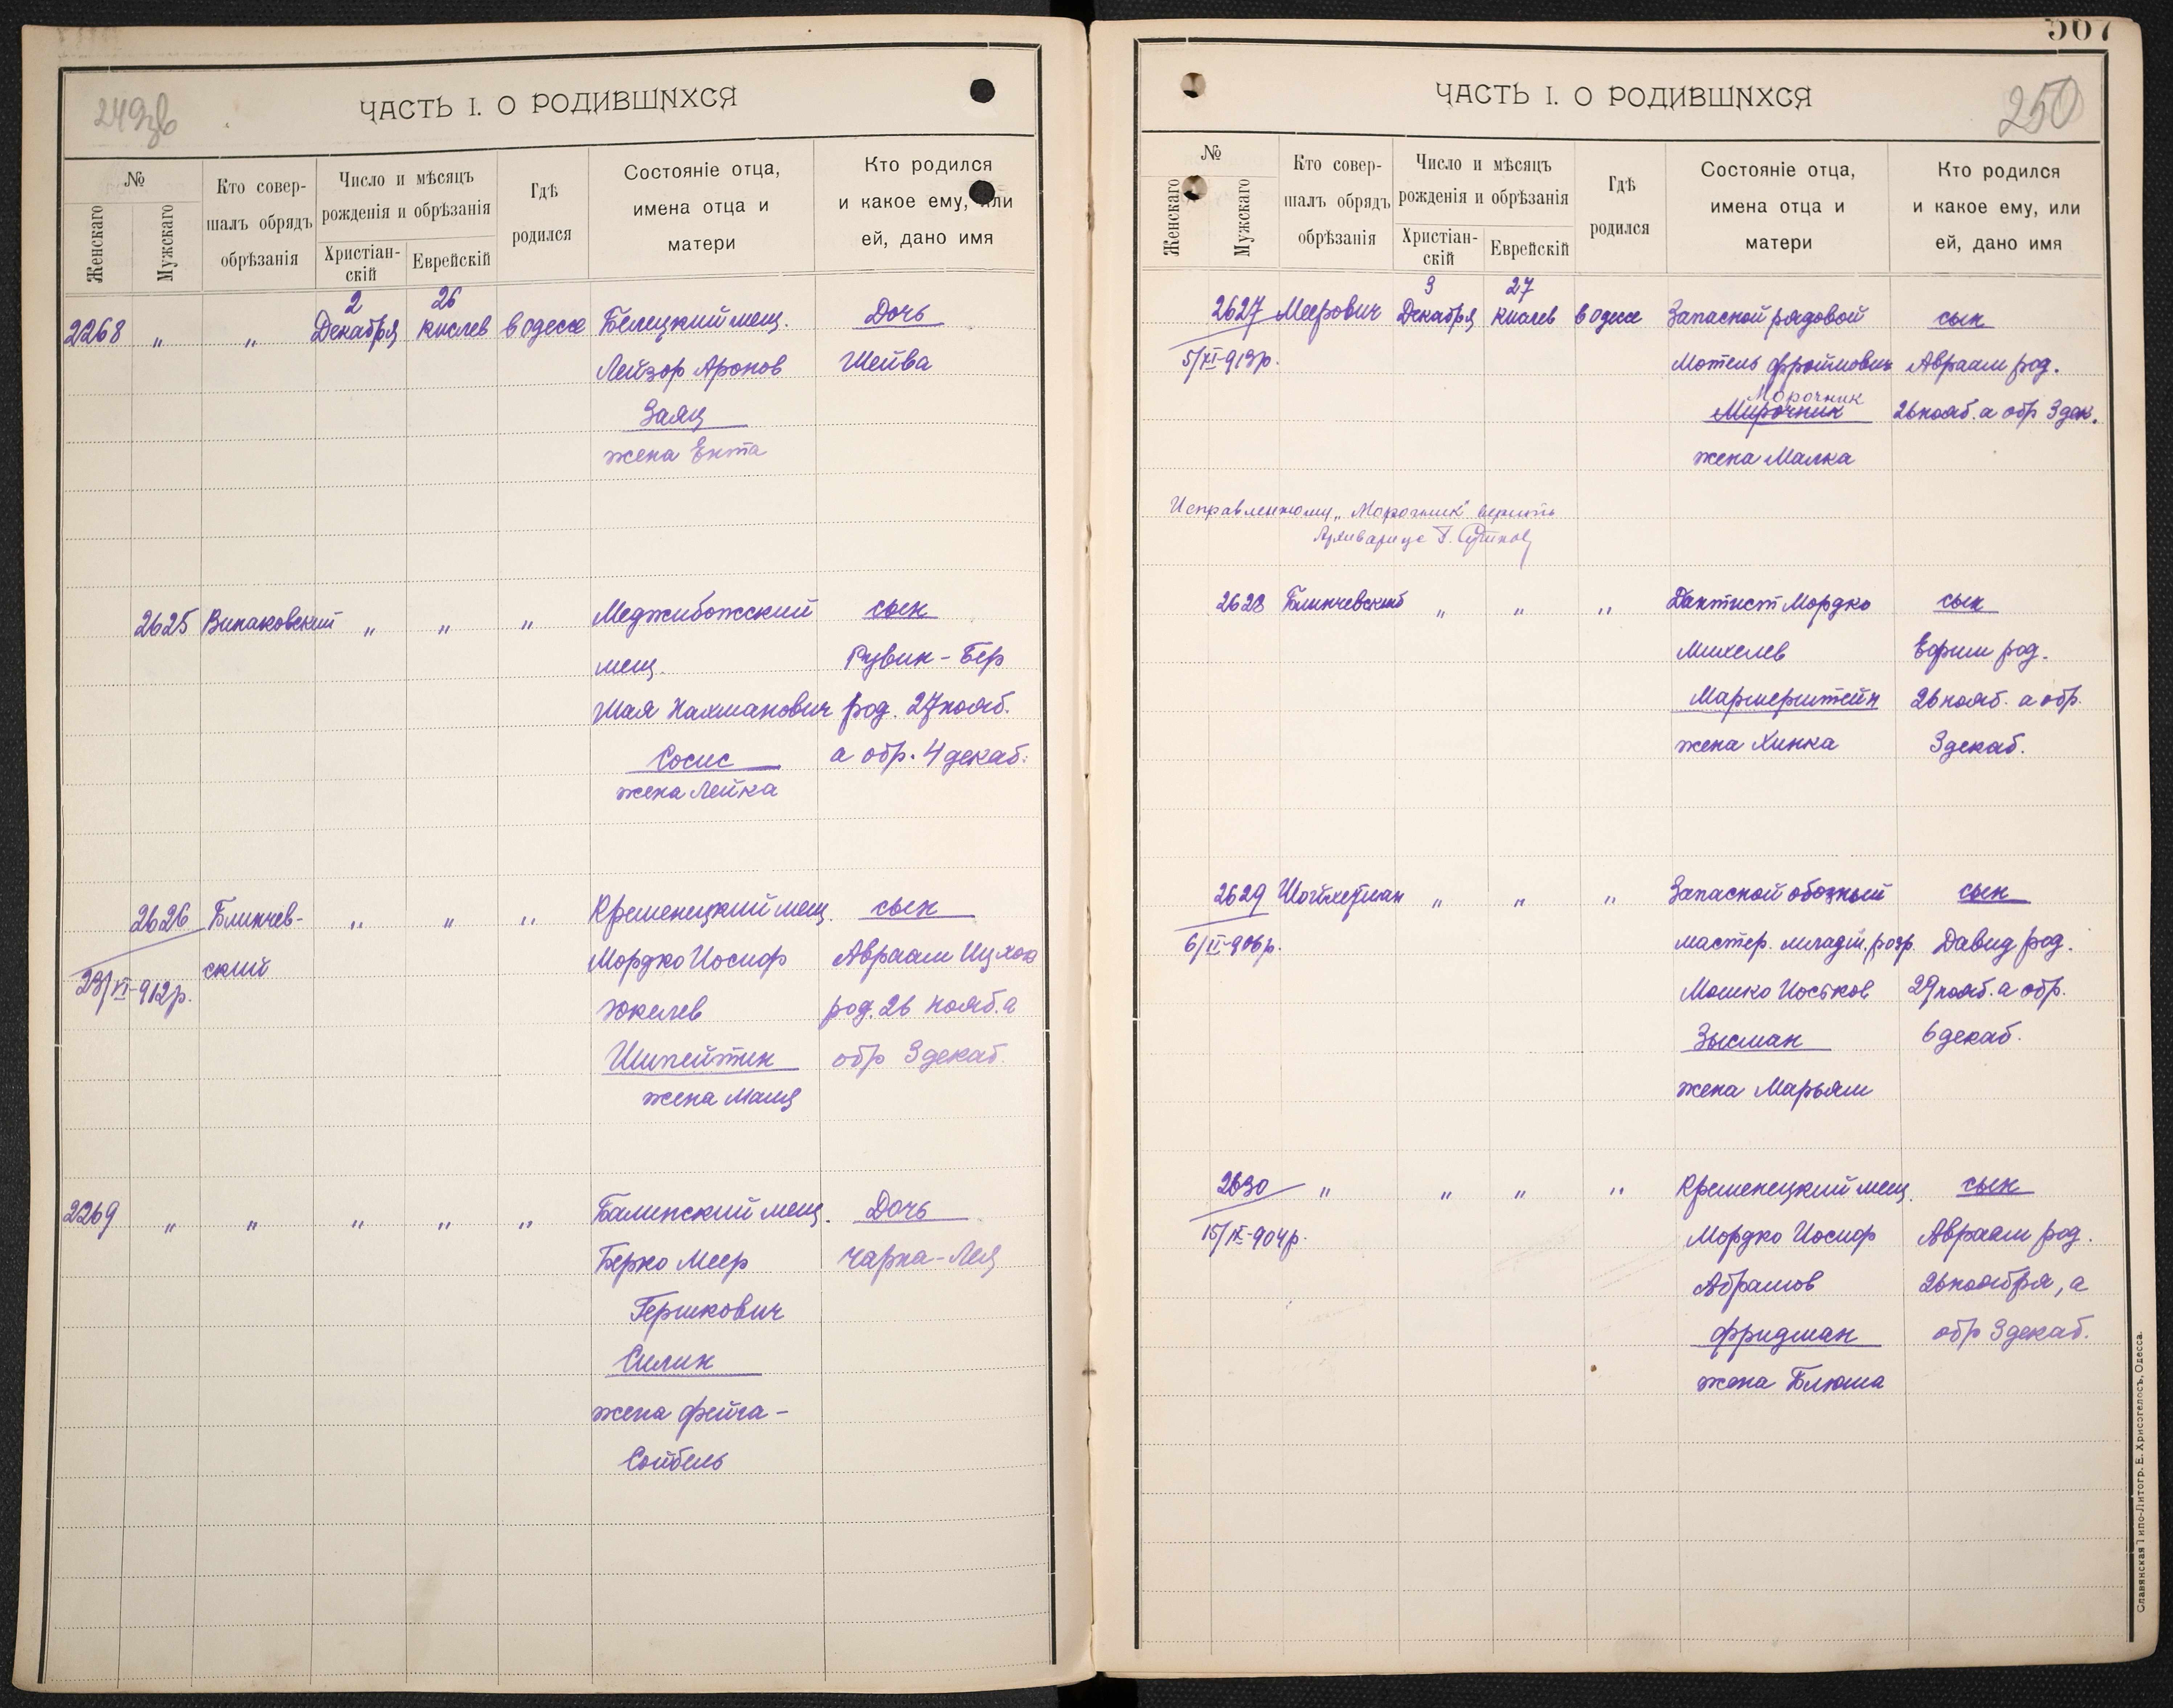 249зв
ЧАСТЬ I. О РОДИВШИХСЯ
№
Женскаго
Мужскаго
Кто совер-
шалъ обрядъ
обрѣзанія
Число и мѣсяцъ
рожденія и обрѣзанія
Христіан-
скій
Еврейскій
Гдѣ
родился
Состояніе отца,
имена отца и
матери
Кто родился
и какое ему, или
ей, дано имя
2 26
2268 " " Декабря кислев в одессе Белецкий мещ. Дочь
Лейзор Аронов Шейва
Заяц
жена Ента
2625 Випаковский " " " Меджибожский сын
мещ. Рувин-Бер
Шая Нахманович род. 27 нояб.
Сосис а обр. 4 декаб.
жена Лейка
2626 Блинчев- " " " Кременецкий мещ. сын
ский Мордко Иосиф Авраам Ицхок
23/VI-912р. Юкелев род. 26 нояб. а
Шпейтин обр 3 декаб.
жена Маня
2269 " " " " " Балинский мещ. Дочь
Берко Меер Чарна-Лея
Гершкович
Силин
жена Фейга-
Сойбель
507
250
ЧАСТЬ I. О РОДИВШИХСЯ
№
Женскаго
Мужскаго
Кто совер-
шалъ обрядъ
обрѣзанія
Число и мѣсяцъ
рожденія и обрѣзанія
Христіан-
скій
Еврейскій
Гдѣ
родился
Состояніе отца,
имена отца и
матери
Кто родился
и какое ему, или
ей, дано имя
3 27
2627 Меерович Декабря кислев в одессе Запасной рядовой сын
5/XI-913р. Мотель Фроймович Авраам род.
Морочник
Мирочник 26 нояб. а обр 3 дек.
жена Малка
Исправленному "Морочник" верить
Архивариус
2628 Блинчевский " " " Дантист Мордко сын
Михелев Ефрим род.
Мармерштейн 26 нояб. а обр.
жена Хинка 3 декаб.
2629 Шойхетман " " " Запасной обозный сын
6/II-906р. мастер. младш. разр. Давид род.
Мошко Иоськов 29 нояб. а обр.
Зысман 6 декаб.
жена Марьям
2630 " " " " Кременецкий мещ. сын
15/IX-904р. Мордко Иосиф Авраам род.
Абрамов 26 ноября, а
Фридман обр 3 декаб.
жена Блюма
Славянская Типо-Литогр. Е. Хрисогелосъ, Одесса.